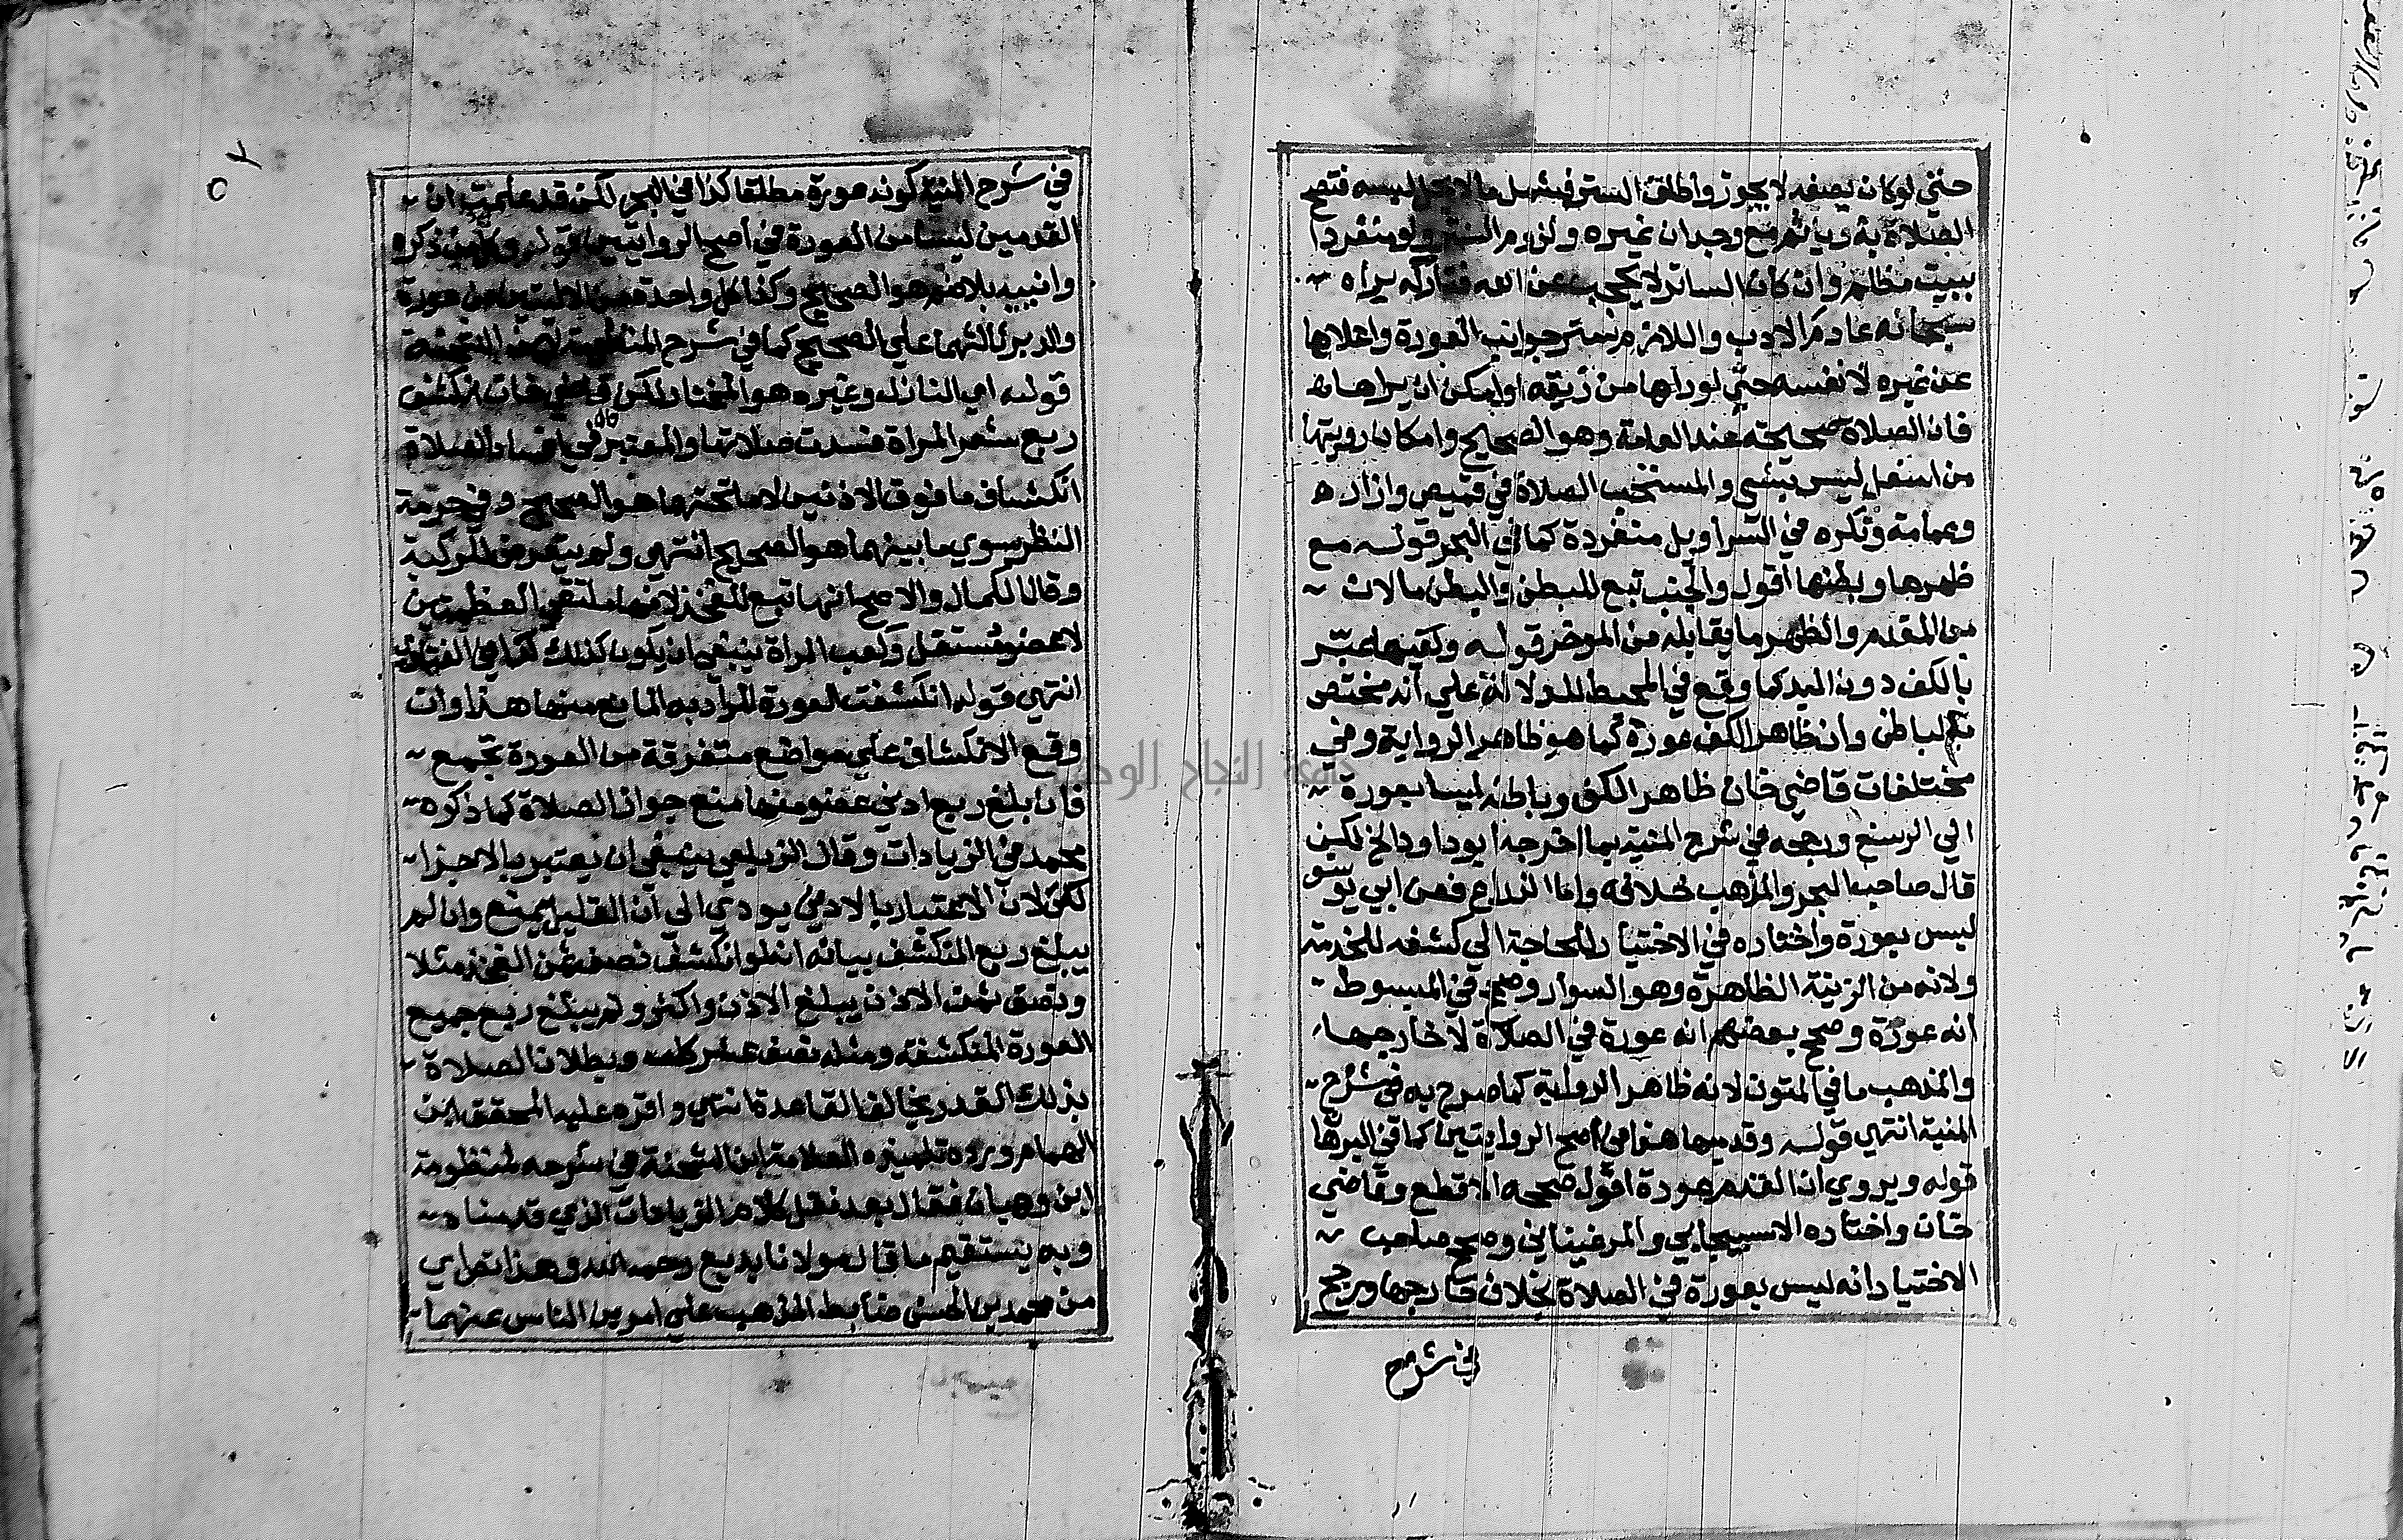 حتي لوكان يصفه لا يجوز واطلق الستر فشمل ما لا يحل لبسه فتصح
الصلاة به وياثم مع وجدان غيره ولزوم الستر ولو منفردا
ببيت مظلم وان كان الساتر لا يحجب عن الله فتاركه يراه
سبحانه عادم الادب واللازم ستر جوانب العورة واعلاها
عن غيره لا نفسه حتي لو راها من زيقه او امكن ان يراها
فان الصلاة صحيحة عند العامة وهو الصحيح وامكان رويتها
من اسفل ليس بشي والمستحب الصلاة في قميص وازار
وعمامة وتكره في السراويل منفردة كما في البحر قوله مع
ظهرها وبطنها اقول والجنب تبع للبطن والبطن ما لان
من المقدم والظهر ما يقابله من الموخر قوله وكفيها عبر
بالكف دون اليد كما وقع في المحيط للدلالة علي انه مختص
بالباطن وان ظاهر الكف عورة كما هو ظاهر الرواية وفي
مختلفات قاضي خان ظاهر الكف وباطنه ليسا بعورة
الي الرسغ ورجحه في شرح المنية بما اخرجه ابو داود الخ لكن
قال صاحب البحر والمذهب خلافه واما الذراع فعن ابي يوسف
ليس بعورة واختاره في الاختيار للحاجة الي كشفه للخدمة
ولانه من الزينة الظاهرة وهو السوار وصحح في المبسوط
انه عورة وصحح بعضهم انه عورة في الصلاة لا خارجها
والمذهب ما في المتون لانه ظاهر الرواية كما صرح به في شرح
المنية انتهي قوله وقدميها هذا في اصح الروايتين كما في البرهان
قوله ويروي ان القدم عورة اقول صححه الاقطع وقاضي
خان واختاره الاسبيجابي والمرغيناني وصحح صاحب
الاختيار انه ليس بعورة في الصلاة بخلاف خارجها ورجح
في شرح
٥٢
في شرح المنية كونه عورة مطلقا كذا في البحر لكن قد علمت ان
القدمين ليسا من العورة في اصح الروايتين قوله وكل من ذكره
وانثييه بلا ضم هو الصحيح وكذا كل واحدة من الاليتين عورة
والدبر ثالثهما علي الصحيح كما في شرح المنظومة لابن الشحنة
قوله اي النازل وغيره هو المختار لكن قاضي خان انكشف
ربع شعر المراة فسدت صلاتها والمعتبر في افساد الصلاة
انكشاف ما فوق الاذنين لا ما تحتهما هو الصحيح وفي حرمة
النظر سوي ما بينهما هو الصحيح انتهي ولم يتعرض للركبة
وقال الكمال والاصح انها تبع للفخذ لانها ملتقي العظمين
لا عضو مستقل وكعب المراة ينبغي ان يكون كذلك كما في
انتهي قوله انكشفت العورة المراد به المانع منها هذا وان
وقع الانكشاف علي مواضع متفرقة من العورة تجمع
فان بلغ ربع ادني عضو منها منع جواز الصلاة كما ذكره
محمد في الزيادات وقال الزيلعي ينبغي ان يعتبر بالاجزا
لان الاعتبار بالادني يودي الي ان القليل يمنع وان لم
يبلغ ربع المنكشف بيانه انه لو انكشف نصف ثمن الفخذ مثلا
ونصف ثمن الاذن يبلغ الاذن واكثر ولم يبلغ ربع جميع
العورة المنكشفة ومثله نصف عشر كل وبطلان الصلاة
بذلك القدر يخالف القاعدة انتهي واقره عليه المحقق ابن
الهمام ورده تلميذه العلامة ابن الشحنة في شرحه لمنظومة
ابن وهبان فقال بعد نقل كلام الزيادات الذي قدمناه
وبه يستقيم ما قال مولانا بديع رحمه الله وهذا نص اي
من محمد بن الحسن ضابط المذهب علي امرين الناس عنهما